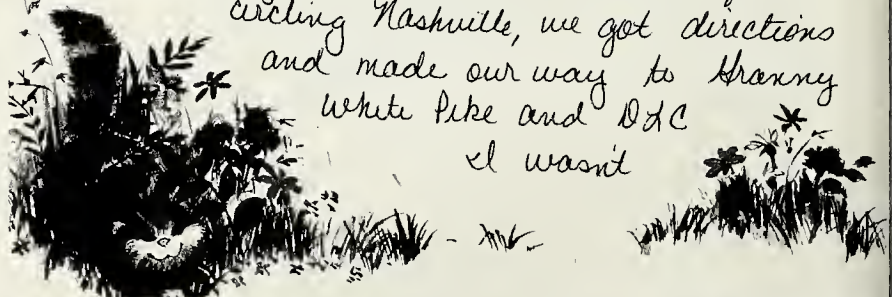 circling Nashville, we got directions
and made our way to Granny
White Pike and DLC
I wasn't